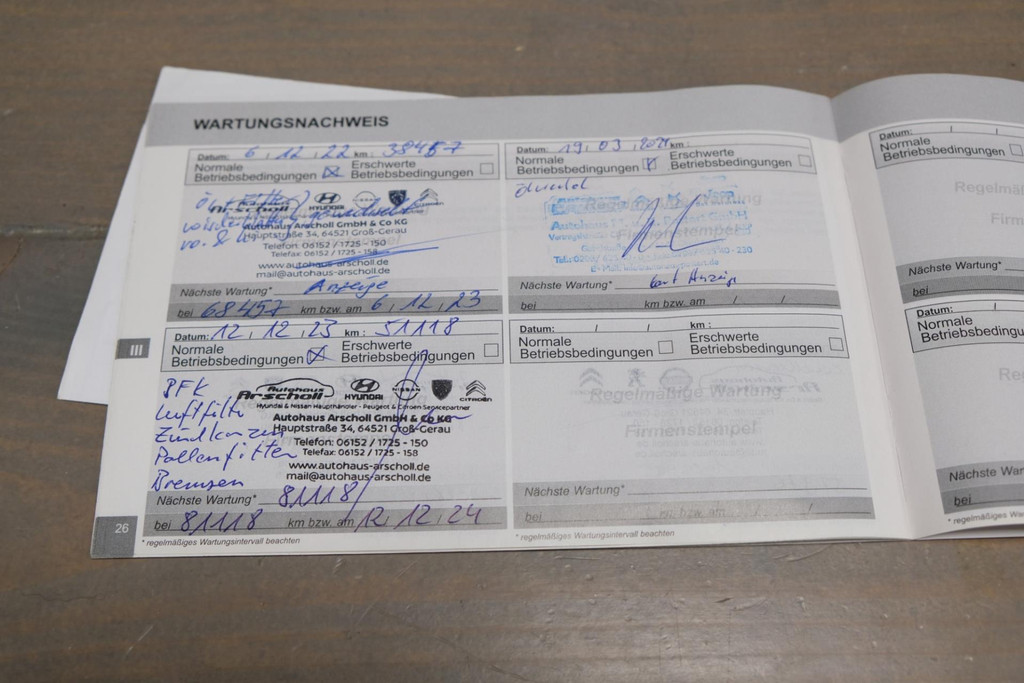 WARTUNGSNACHWEIS
Datum: 6.12.22 km: 38457
Normale Betriebsbedingungen ☒ Erschwerte Betriebsbedingungen ☐
Arscholl HYUNDAI
Autohaus Arscholl GmbH & Co KG
Hauptstraße 34, 64521 Groß-Gerau
Telefon: 06152 / 1725 - 150
Telefax: 06152 / 1725 - 158
www.autohaus-arscholl.de
mail@autohaus-arscholl.de
Nächste Wartung* Anzeige
bei 68457 km bzw. am 6.12.23
Datum: 19.03 km:
Normale Betriebsbedingungen ☒ Erschwerte Betriebsbedingungen ☐
Nächste Wartung* laut Anzeige
bei km bzw. am / /
III
Datum: 12.12.23 km: 51118
Normale Betriebsbedingungen ☒ Erschwerte Betriebsbedingungen ☐
BFK
Luftfilter
Zündkerzen
Pollenfilter
Bremsen
Autohaus Arscholl HYUNDAI NISSAN CITROËN
Hyundai & Nissan Haupthändler - Peugeot & Citroen Servicepartner
Autohaus Arscholl GmbH & Co KG
Hauptstraße 34, 64521 Groß-Gerau
Telefon: 06152 / 1725 - 150
Telefax: 06152 / 1725 - 158
www.autohaus-arscholl.de
mail@autohaus-arscholl.de
Nächste Wartung* 81118
bei 81118 km bzw. am 12.12.24
Datum: / / km:
Normale Betriebsbedingungen ☐ Erschwerte Betriebsbedingungen ☐
Regelmäßige Wartung
Firmenstempel
Nächste Wartung*
bei km bzw. am / /
26
* regelmäßiges Wartungsintervall beachten
* regelmäßiges Wartungsintervall beachten
Datum: / /
Normale
Betriebsbedingungen ☐
Nächste Wartung*
bei
Datum: /
Normale
Nächste
bei